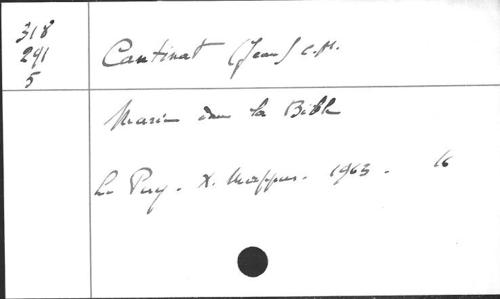 318
291
5
Cantinat (Jean) C.M.
Marie dans la Bible
Le Puy. X. Mappus. 1963. 16